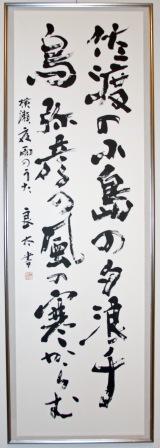 佐渡の小島の夕浪千
鳥弥彦の風の寒からむ
横瀬夜雨のうた 良太書